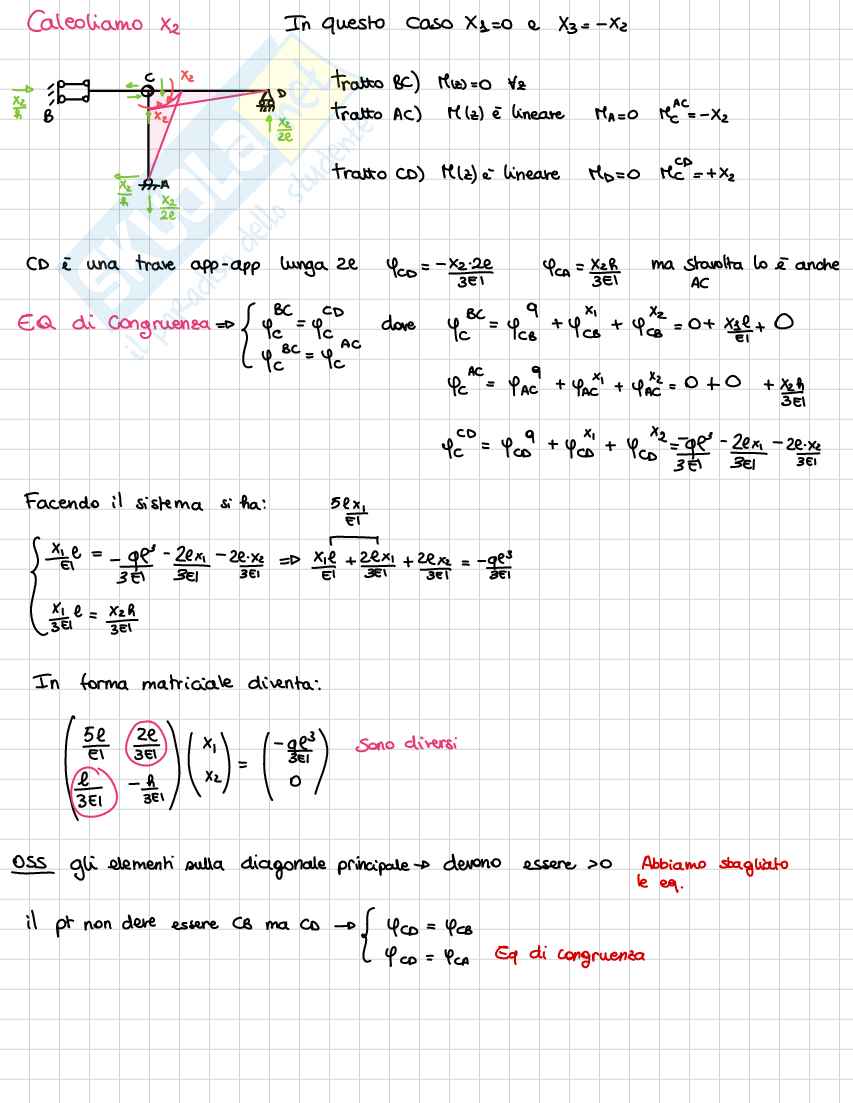 Calcoliamo X₂ In questo caso X₁=0 e X₃=-X₂
C X₂
X₂/h B X₂ D X₂/2l
X₂/h A X₂/2l
tratto BC) M(z)=0 ∀z
tratto AC) M(z) è lineare M_A=0 M_C^AC=-X₂
tratto CD) M(z) è lineare M_D=0 M_C^CD=+X₂
SKUOLA.net
il paradiso dello studente
CD è una trave app-app lunga 2l φ_CD=-X₂·2l/3EI φ_CA=X₂h/3EI ma stavolta lo è anche AC
EQ di Congruenza ⇒ { φ_C^BC=φ_C^CD dove φ_C^BC=φ_CB^q+φ_CB^X₁+φ_CB^X₂=0+X₁l/EI+0
φ_C^BC=φ_C^AC
φ_C^AC=φ_AC^q+φ_AC^X₁+φ_AC^X₂=0+0+X₂h/3EI
φ_C^CD=φ_CD^q+φ_CD^X₁+φ_CD^X₂=-ql³/3EI-2lX₁/3EI-2l·X₂/3EI
Facendo il sistema si ha: 5lX₁/EI
{ X₁/EI l=-ql³/3EI-2lX₁/3EI-2l·X₂/3EI ⇒ X₁l/EI+2lX₁/3EI+2lX₂/3EI=-ql³/3EI
X₁/3EI l=X₂h/3EI
In forma matriciale diventa:
(5l/EI 2l/3EI) (X₁) = (-ql³/3EI) Sono diversi
(l/3EI -h/3EI) (X₂) (0)
OSS gli elementi sulla diagonale principale → devono essere >0 Abbiamo sbagliato
le eq.
il pt non deve essere CB ma CD → { φ_CD=φ_CB
φ_CD=φ_CA Eq di congruenza